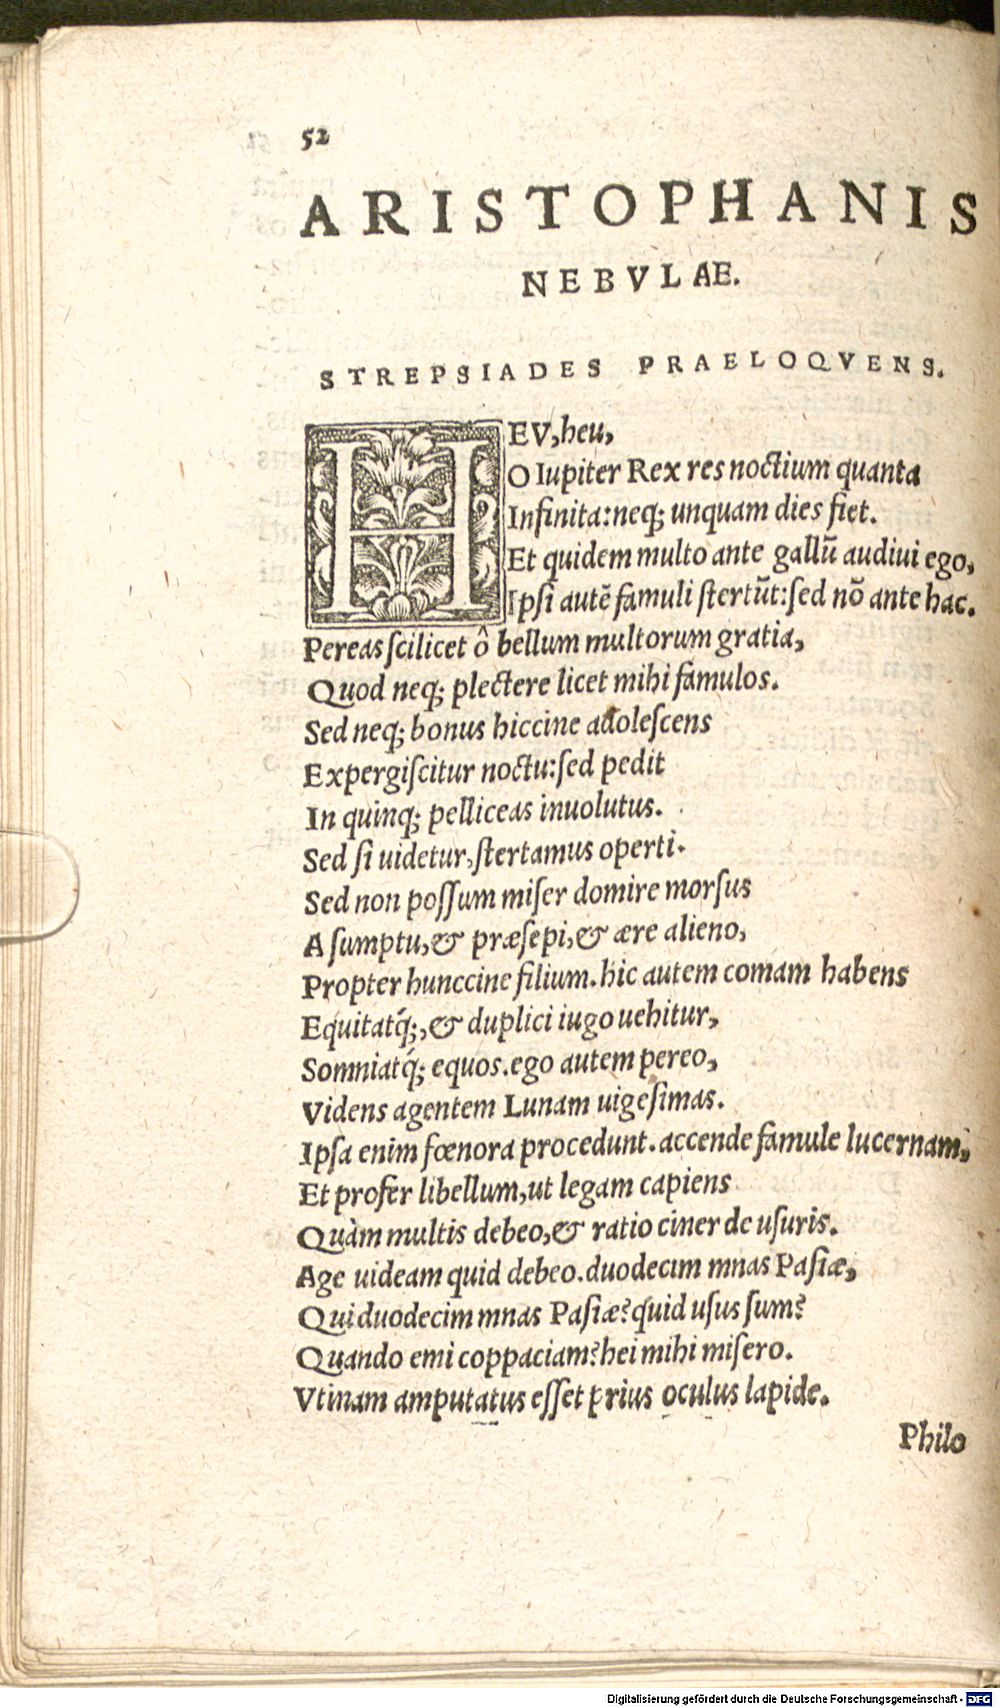 52
ARISTOPHANIS
NEBVLAE.
STREPSIADES PRAELOQVENS.
HEV, heu,
O Iupiter Rex res noctium quanta
Infinita: neq; unquam dies fiet.
Et quidem multo ante gallū audiui ego,
Ipsi autē famuli stertūt: sed nō ante hac.
Pereas scilicet ô bellum multorum gratia,
Quod neq; plectere licet mihi famulos.
Sed neq; bonus hiccine adolescens
Expergiscitur noctu: sed pedit
In quinq; pelliceas inuolutus.
Sed si uidetur, stertamus operti.
Sed non possum miser domire morsus
A sumptu, & præsepi, & ære alieno,
Propter hunccine filium. hic autem comam habens
Equitatq́;, & duplici iugo uehitur,
Somniatq́; equos. ego autem pereo,
Videns agentem Lunam uigesimas.
Ipsa enim fœnora procedunt. accende famule lucernam,
Et profer libellum, ut legam capiens
Quàm multis debeo, & ratiociner de usuris.
Age uideam quid debeo. duodecim mnas Pasiæ,
Qui duodecim mnas Pasiæ? quid usus sum?
Quando emi coppaciam? hei mihi misero.
Vtinam amputatus esset prius oculus lapide.
Philo
Digitalisierung gefördert durch die Deutsche Forschungsgemeinschaft - DFG